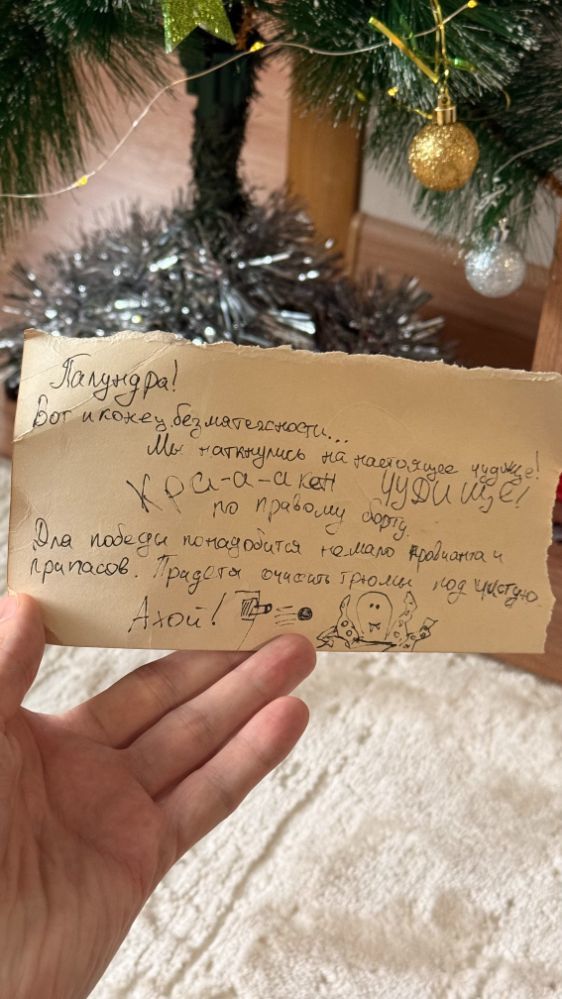 Палундра!
Вот и конец безмятежности...
Мы наткнулись на настоящее чудище!
КРА-А-АКЕН ЧУДИЩЕ!
по правому борту.
Для победы понадобится немало провианта и
припасов. Придется очистить трюмы под чистую.
Ахой!